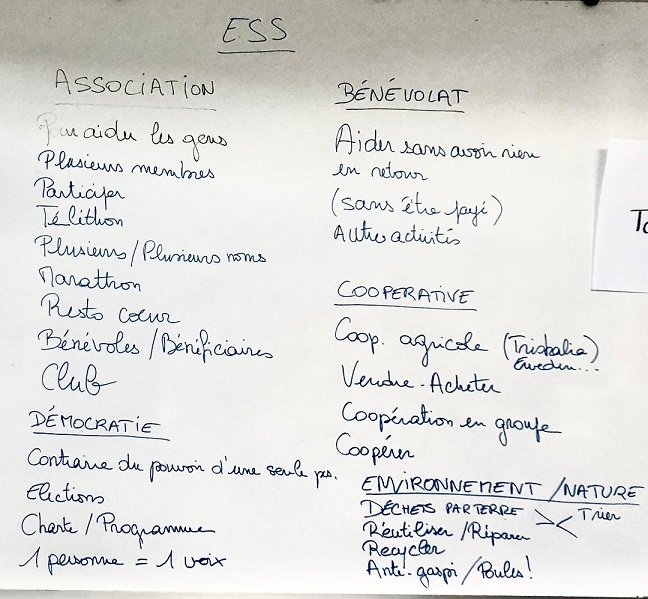 ESS
ASSOCIATION
Pour aider les gens
Plusieurs membres
Participer
Téléthon
Plusieurs / Plusieurs noms
Marathon
Resto coeur
Bénévoles / Bénéficiaires
Club
DÉMOCRATIE
Contraire du pouvoir d'une seule ps.
Elections
Charte / Programme
1 personne = 1 voix
BÉNÉVOLAT
Aider sans avoir rien
en retour
(sans être payé)
Autres activités
COOPERATIVE
Coop. agricole (Triskalia)
Eureden...
Vendre - Acheter
Coopération en groupe
Coopérer
ENVIRONNEMENT / NATURE
DÉCHETS PAR TERRE Trier
Réutiliser / Réparer
Recycler
Anti-gaspi / Poules !